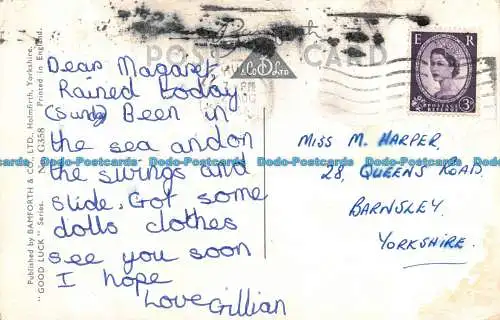 Bamforth
POST CARD
B. & Co LTD
Published by BAMFORTH & CO., LTD., Holmfirth, Yorkshire.
"GOOD LUCK" Series. G358 Printed in England.
Dear Magaret,
Rained today
(Sunday) Been in
the sea and on
the swings and
slide. Got some
dolls clothes
see you soon
I hope
Love Gillian
E R
POSTAGE REVENUE
3D
MISS M. HARPER,
28, QUEENS ROAD,
BARNSLEY.
YORKSHIRE.
Dodo-Postcards Dodo-Postcards Dodo-Postcards Dodo-Postcards